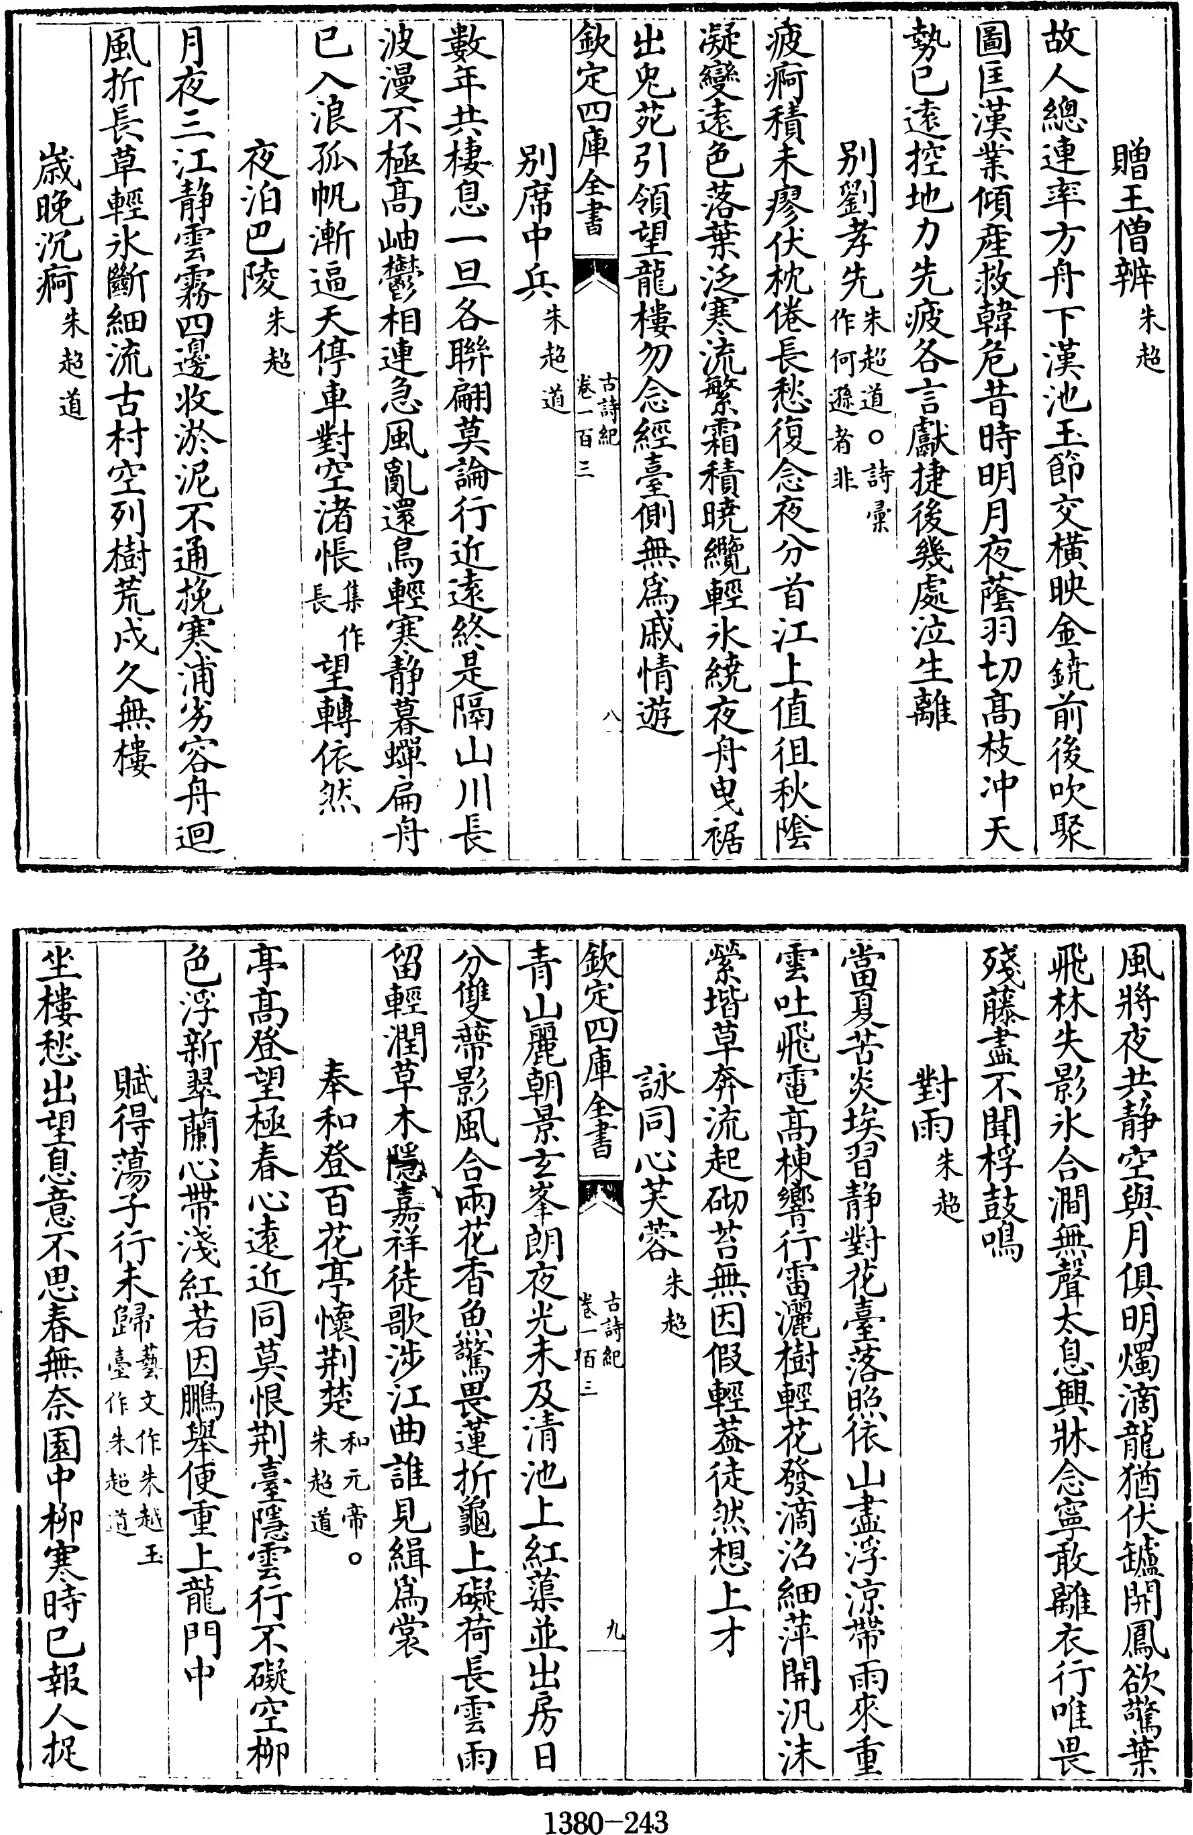 贈王僧辨朱超
故人總連率方舟下漢池玉節交横映金鐃前後吹聚
圖匡漢業傾産救韓危昔時明月夜蔭羽切髙枝冲天
勢已遠控地力先疲各言獻捷後幾處泣生離
别劉孝先朱超道○詩彚作何遜者非
疲痾積未瘳伏枕倦長愁復念夜分首江上值徂秋隂
凝變遠色落葉泛寒流繁霜積曉纜輕氷繞夜舟曵裾
出兔苑引領望龍樓勿念經臺側無為戚情遊
欽定四庫全書
古詩紀
卷一百三
八
别席中兵朱超道
數年共棲息一旦各聯翩莫論行近遠終是隔山川長
波漫不極髙岫鬱相連急風亂還鳥輕寒静暮蟬扁舟
已入浪孤帆漸逼天停車對空渚悵集作長望轉依然
夜泊巴陵朱超
月夜三江静雲霧四邊收淤泥不通挽寒浦劣容舟迴
風折長草輕氷斷細流古村空列樹荒戍久無樓
歲晚沉痾朱超道
風將夜共静空與月俱明燭滴龍猶伏鑪開鳳欲驚葉
飛林失影氷合澗無聲太息興牀念寧敢離衣行唯畏
殘藤盡不聞桴鼓鳴
對雨朱超
當夏苦炎埃習静對花臺落照依山盡浮凉帶雨來重
雲吐飛電髙棟響行雷灑樹輕花發滴沼細萍開汎沫
縈堦草奔流起砌苔無因假輕蓋徒然想上才
詠同心芙蓉朱超
欽定四庫全書
古詩紀
卷一百三
九
青山麗朝景玄峯朗夜光未及清池上紅蕖並出房日
分雙蔕影風合兩花香魚驚畏蓮折龜上礙荷長雲雨
留輕潤草木隱嘉祥徒歌涉江曲誰見緝為裳
奉和登百花亭懷荆楚和元帝○朱超道
亭髙登望極春心遠近同莫恨荆臺隱雲行不礙空柳
色浮新翠蘭心帶淺紅若因鵬舉便重上龍門中
賦得蕩子行未歸藝文作朱越玉臺作朱超道
坐樓愁出望息意不思春無奈園中柳寒時已報人捉
1380-243